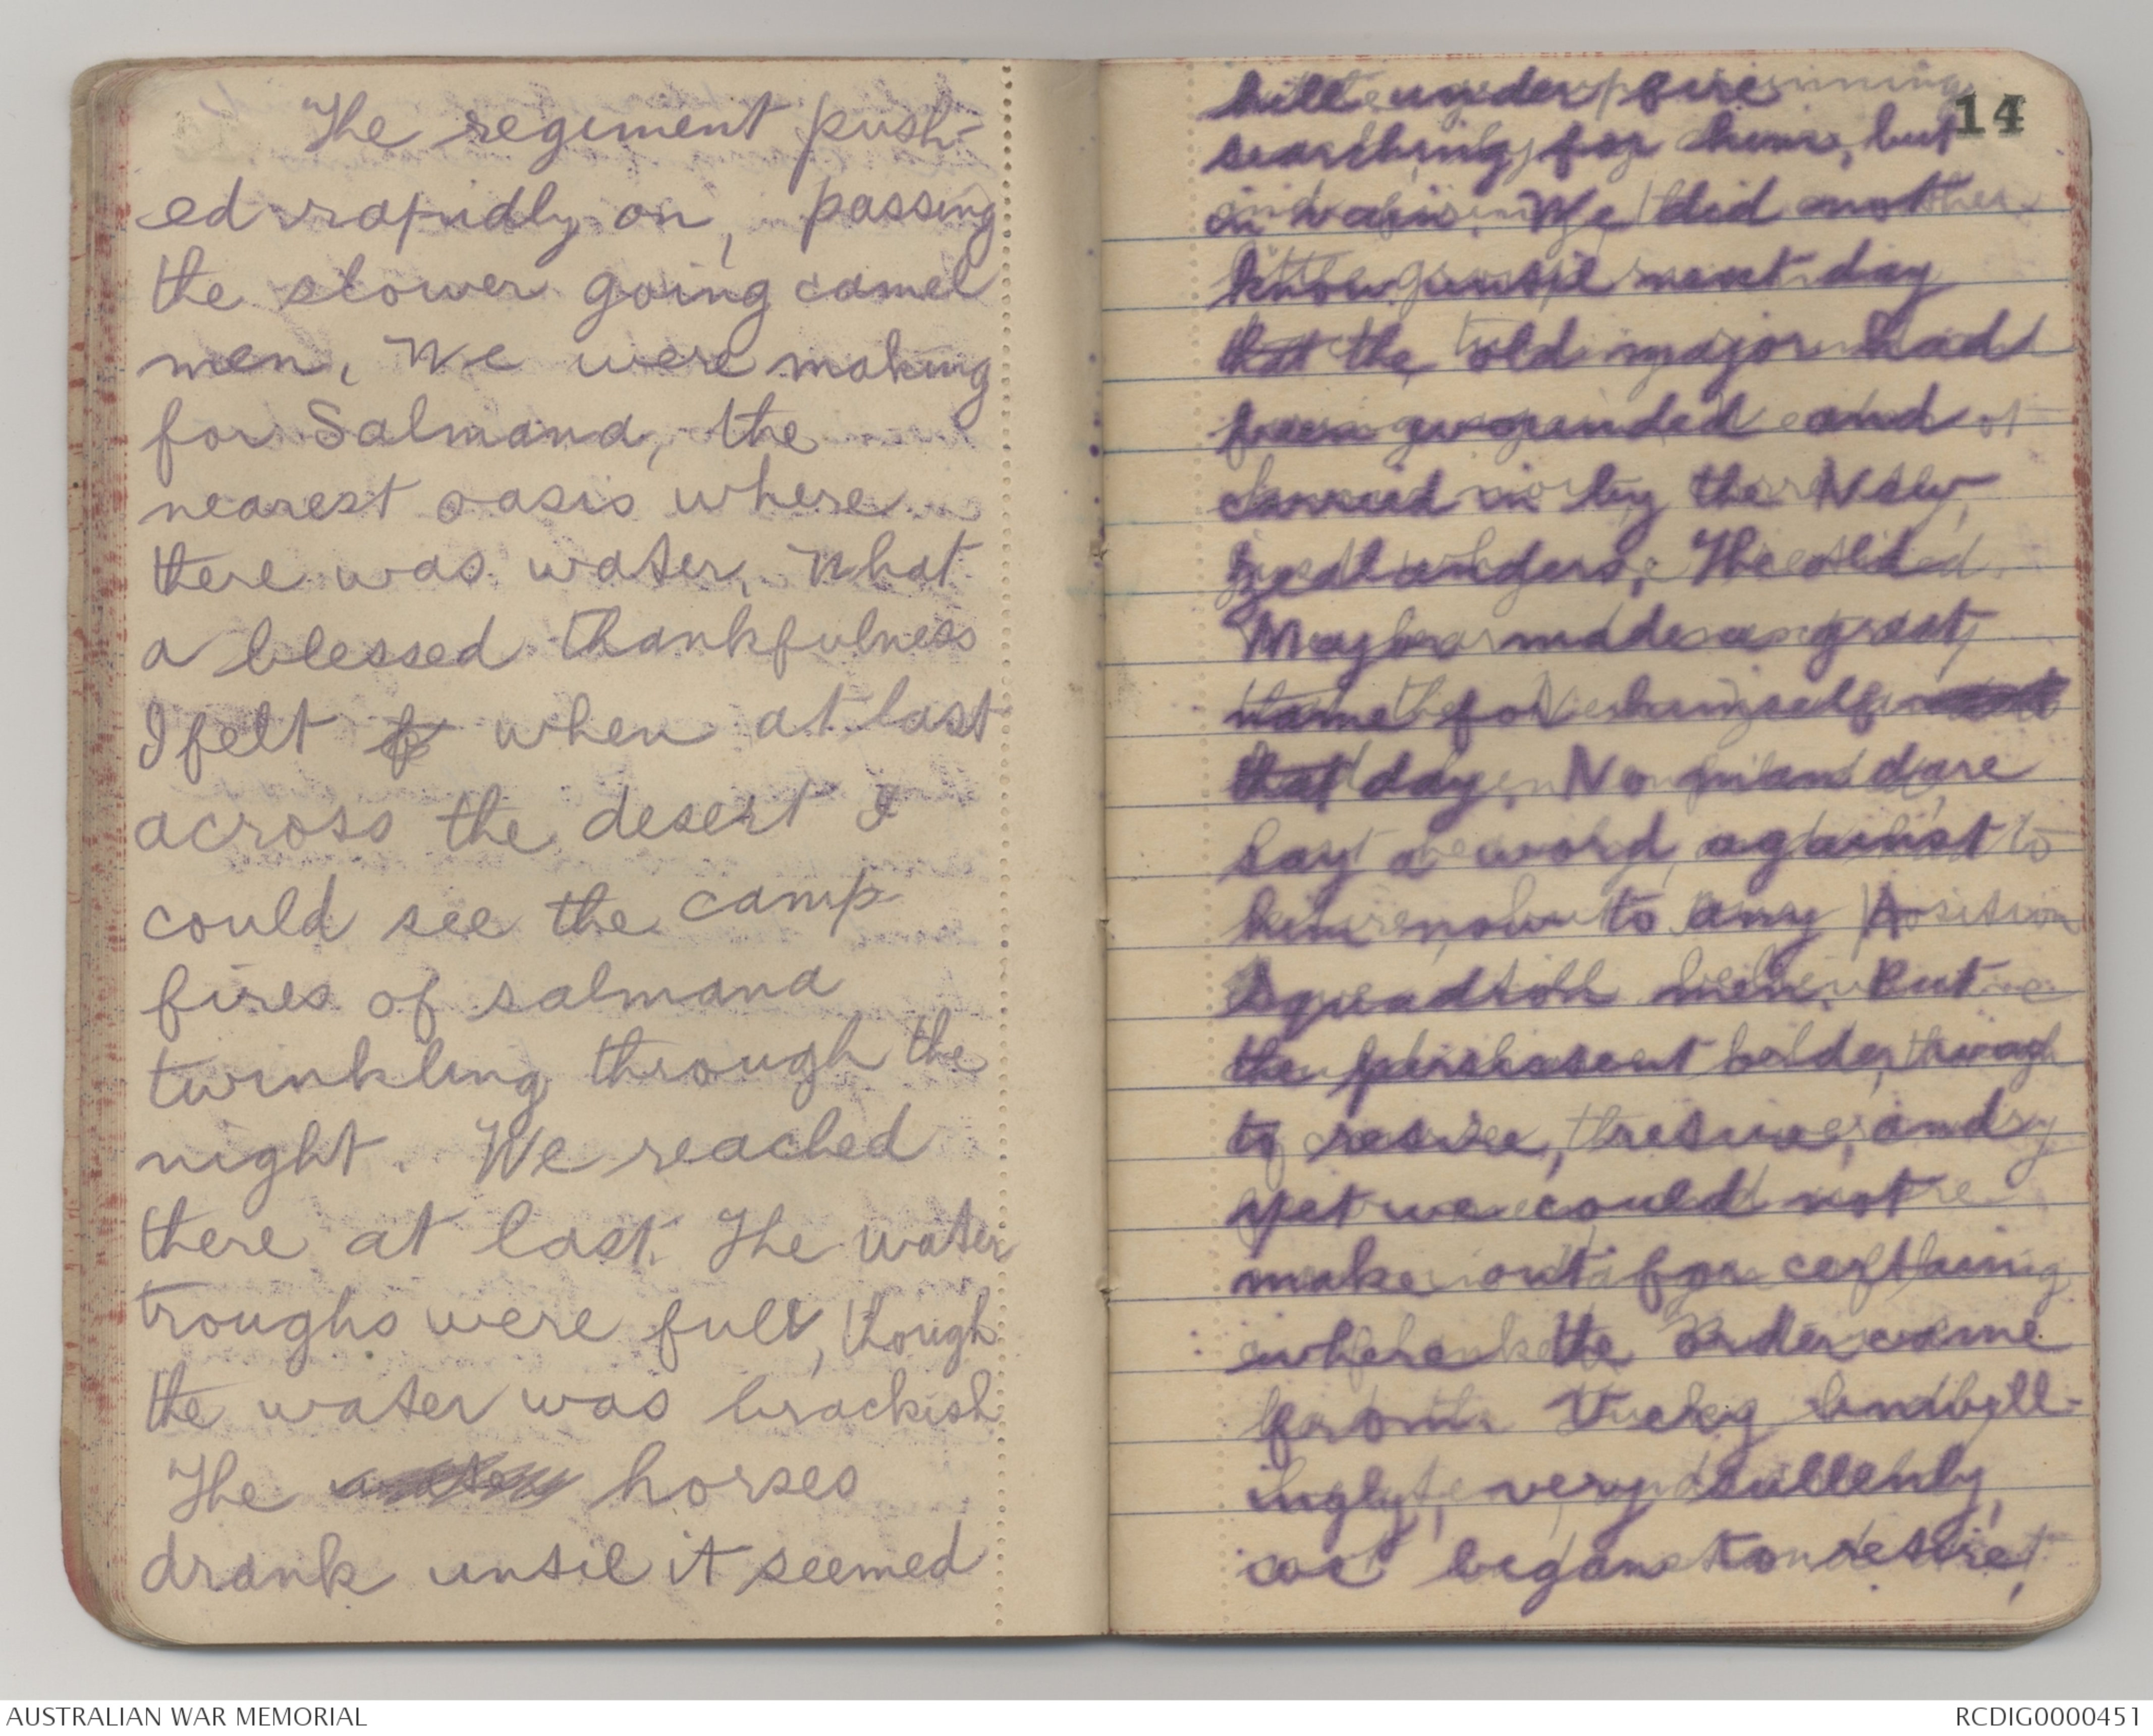 The regiment push-
ed rapidly on, passing
the slower going camel
men. We were making
for Salmana, the
nearest oasis where
there was water. What
a blessed thankfulness
I felt when at last
across the desert I
could see the camp
fires of salmana
twinkling through the
night. We reached
there at last. The water
troughs were full, though
the water was brackish
The horses
drank until it seemed
14
hill under fire
searching for him, but
in vain. We did not
know until next day
that the old major had
been wounded and
carried in by the New
Zealanders. The old
Major made a great
name for himself
that day. No man dare
say a word against
him now to any A
Squadron men. But
the persistent order
to retire, retire, and
yet we could not
make out for certain
where the order came
from. Very unwill-
ingly, very sullenly,
we began to retire,
AUSTRALIAN WAR MEMORIAL
RCDIG0000451